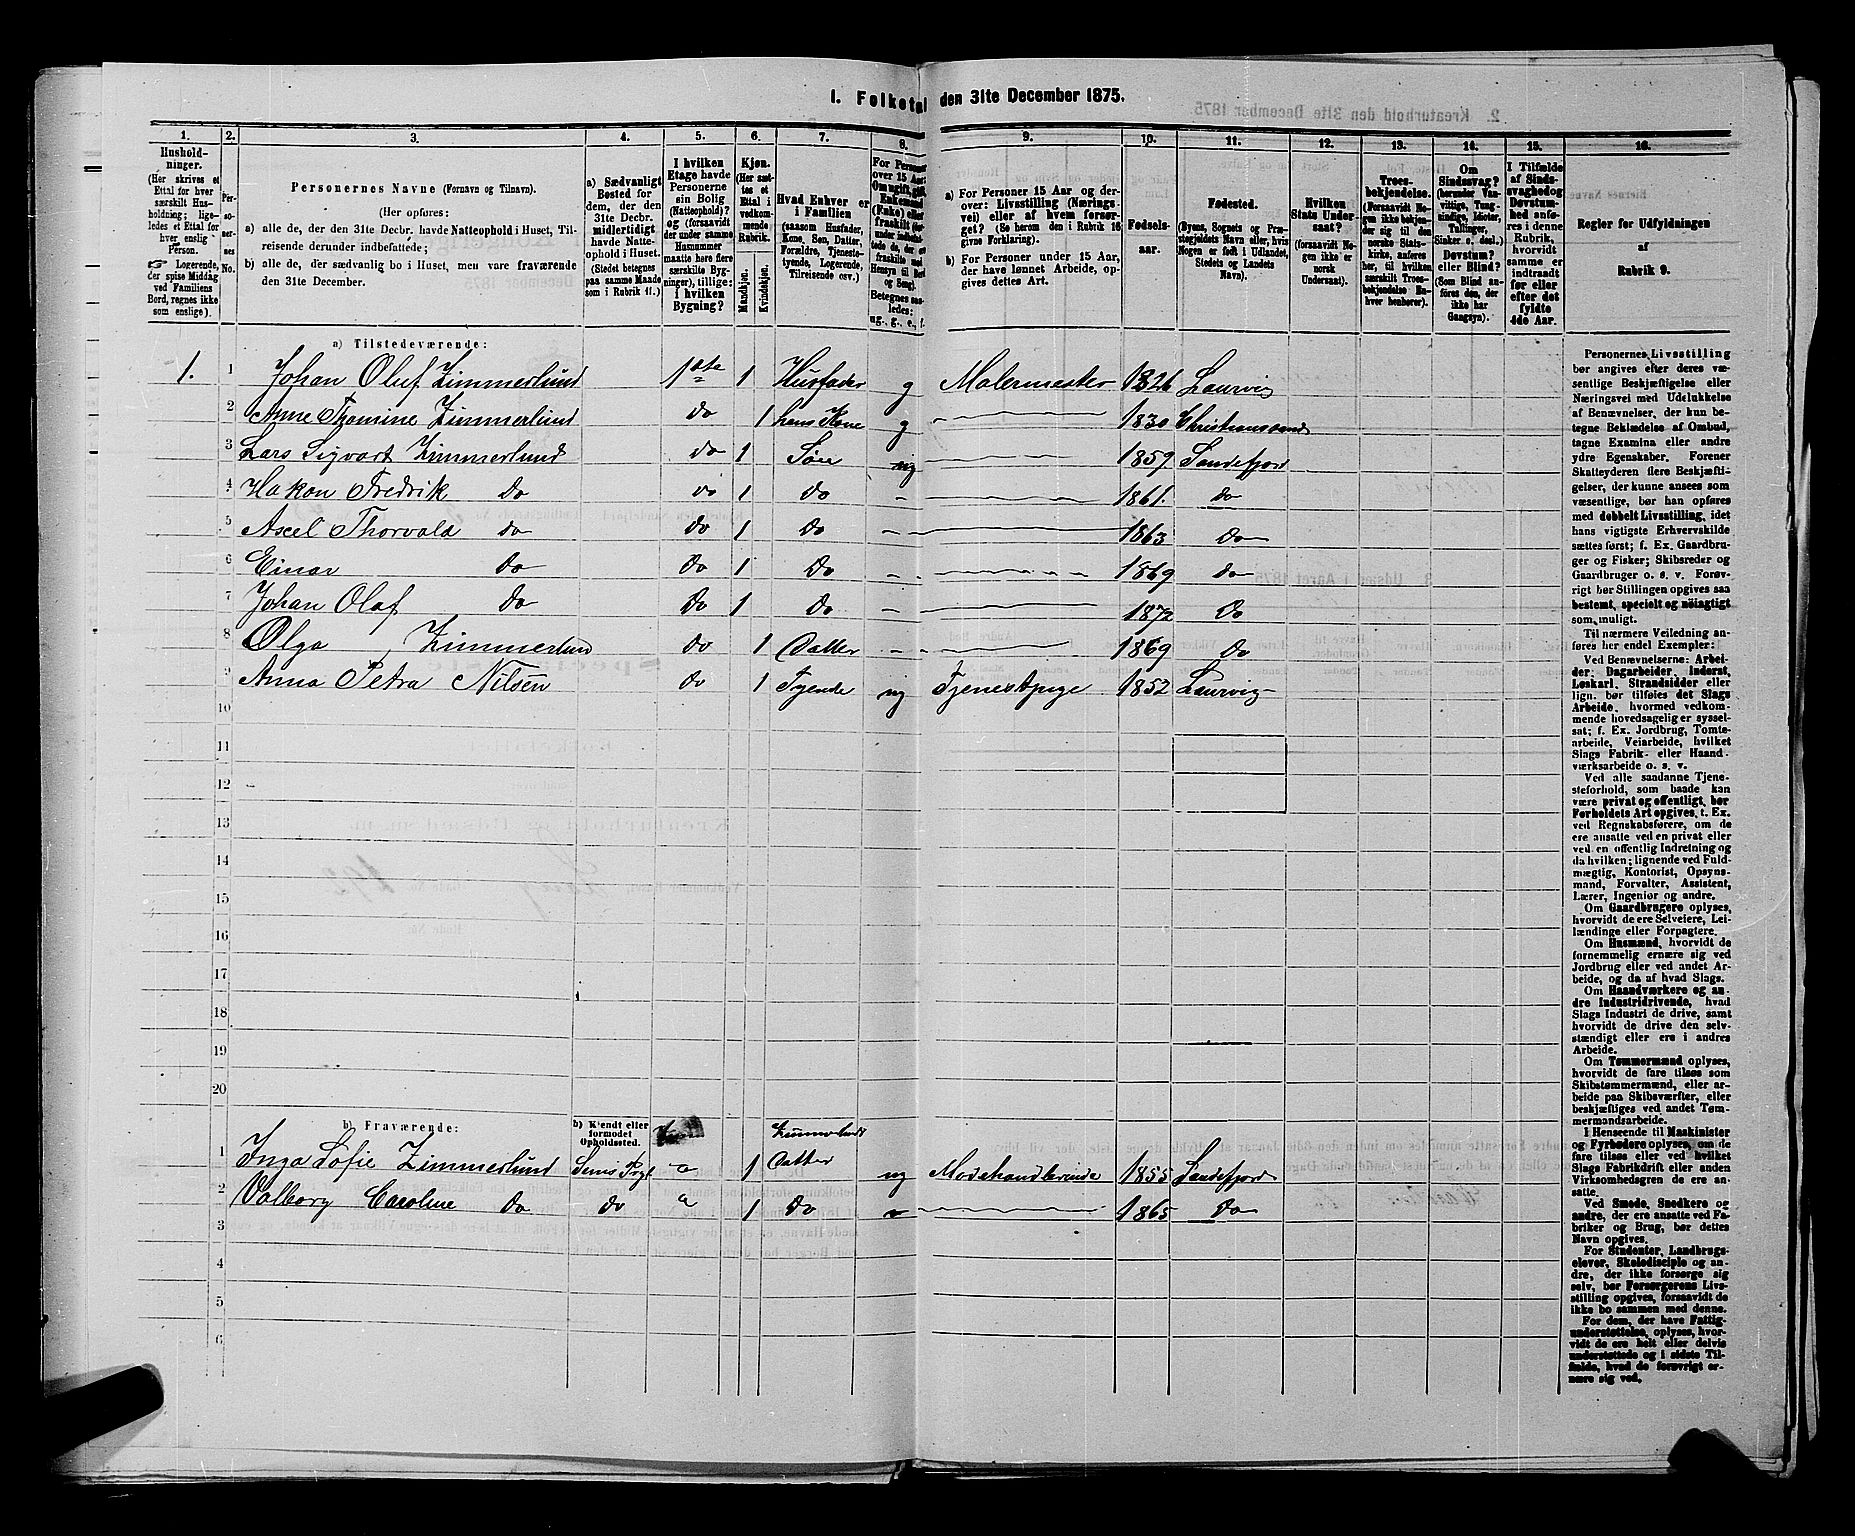 1. Folketal den 31te December 1875.
1. 2. 3. 4. 5. 6. 7. 8. 9. 10. 11. 12. 13. 14. 15. 16.
Hushold-
ninger.
(Her skrives et
Ettal for hver
særskilt Hus-
holdning; lige-
ledes et Ettal for
hver enslig
Person.
☞ Logerende,
der spise Middag
ved Familiens
Bord, regnes ikke
som enslige).
Per-
so-
ner-
nes
No.
Personernes Navne (Fornavn og Tilnavn).
(Her opføres:
a) alle de, der den 31te Decbr. havde Natteophold i Huset, Til-
reisende derunder indbefattede;
b) alle de, der sædvanlig bo i Huset, men vare fraværende
den 31te December.
a) Sædvanligt
Bosted for
dem, der den
31te Decbr.
midlertidigt
havde Natte-
ophold i Huset.
(Stedet betegnes
paa samme Maade
som i Rubrik 11.)
I hvilken
Etage havde
Personerne
sin Bolig
(Natteophold)?
og (forsaavidt
der under samme
Husnummer
maatte høre flere
særskilte Byg-
ninger), tillige:
i hvilken
Bygning?
Kjøn.
(Her sæt-
tes et
Ettal i
vedkom-
mende
Rubrik.
Mandkjøn.
Kvindekjøn.
Hvad Enhver er
i Familien
(saasom Husfader,
Kone, Søn, Datter,
Forældre, Tjeneste-
tyende, Logerende,
Tilreisende osv.)
For Personer
over 15 Aar:
Betegnes saa-
ledes:
ug., g., e., f.
a) For Personer 15 Aar og der-
over: Livsstilling (Nærings-
vei) eller af hvem forsør-
get? (Se herom den i Rubrik 16
givne Forklaring).
b) For Personer under 15 Aar,
der have lønnet Arbeide, op-
gives dettes Art.
Fødsels-
aar.
Fødested.
(Byens, Sognets og Præ-
stegjeldets Navn eller, hvis
Nogen er født i Udlandet,
Stedets og Landets
Navn).
Hvilken
Stats Under-
saat?
(forsaavidt No-
gen ikke er
norsk
Undersaat).
Troes-
bekjendelse.
(Forsaavidt No-
gen ikke bekjen-
der sig til den
norske Stats-
kirke, anføres
her, til hvilken
særskilt Troes-
bekjendelse En-
hver henhører).
Om
Sindssvag?
(herunder Van-
vittige, Tung-
sindige, Idioter,
Tullinger,
Sinker o. desl.)
Døvstum?
eller Blind?
(Som Blind an-
føres den, der
ikke har
Gangsyn).
I Tilfælde
af Sinds-
svaghed og
Døvstum-
hed anfø-
res i denne
Rubrik,
hvorvidt
samme er
indtraadt
før eller
efter det
fyldte
4de Aar.
Regler for Udfyldningen
af
Rubrik 9.
a) Tilstedeværende:
1. 1 Johan Oluf Zimmerlund 1ste 1 Husfader g Malermester 1826 Laurvig
2 Anne Thomine Zimmerlund do 1 hans Kone g 1830 Christianssand
3 Lars Sigvart Zimmerlund do 1 Søn ug 1859 Sandefjord
4 Hakon Fredrik do do 1 do - 1861. do
5 Axel Thorvald do do 1 do - 1863 do
6 Einar do do 1 do - 1869 do
7 Johan Olaf do do 1 do - 1872 do
8 Olga Zimmerlund do 1 Datter - 1869 do
9 Anna Petra Nilsen do 1 Tyende ug Tjenestpige 1852 Laurvig
10
11
12
13
14
15
16
17
18
19
20
b) Fraværende: b) Kjendt eller
formodet
Opholdssted. Zimmerlunds
1 Inga Sofie Zimmerlund 1 Datter ug Modehandlerinde 1855 Sandefjord
2 Valborg Caroline do do 1 do 1865 do
3
4
5
6
Personernes Livsstilling
bør angives efter deres væ-
sentlige Beskjæftigelse eller
Næringsvei med Udelukkelse
af Benævnelser, der kun be-
tegne Beklædelse af Ombud,
tagne Examina eller andre
ydre Egenskaber. Forener
Skatteyderen flere Beskjæfti-
gelser, der kunne ansees som
væsentlige, bør han opføres
med dobbelt Livsstilling, idet
hans vigtigste Erhvervskilde
sættes først; f. Ex. Gaardbru-
ger og Fisker; Skibsreder og
Gaardbruger o. s. v. Forøv-
rigt bør Stillingen opgives saa
bestemt, specielt og nöiagtigt
som muligt.
Til nærmere Veiledning an-
føres her endel Exempler:
Ved Benævnelserne: Arbei-
der, Dagarbeider, Inderst,
Løskarl, Strandsidder eller
lign. bør tilføies det Slags
Arbeide, hvormed vedkom-
mende hovedsagelig er syssel-
sat; f. Ex. Jordbrug, Tomte-
arbeide, Veiarbeide, hvilket
Slags Fabrik- eller Haand-
værksarbeide o. s. v.
Ved alle saadanne Tjene-
steforhold, som baade kan
være privat og offentligt, bør
Forholdets Art opgives, t. Ex.
ved Regnskabsførere, om de
ere ansatte ved en privat eller
ved en offentlig Indretning og
da hvilken; lignende ved Fuld-
mægtig, Kontorist, Opsyns-
mand, Forvalter, Assistent,
Lærer, Ingeniør og andre.
Om Gaardbrugere oplyses,
hvorvidt de ere Selveiere, Lei-
lændinge eller Forpagtere.
Om Husmænd, hvorvidt de
fornemmelig ernære sig ved
Jordbrug eller ved andet Ar-
beide, og da af hvad Slags.
Om Haandværkere og an-
dre Industridrivende, hvad
Slags Industri de drive, samt
hvorvidt de drive den selv-
stændigt eller ere i andres
Arbeide.
Om Tømmermænd oplyses,
hvorvidt de fare tilsøs som
Skibstømmermænd, eller ar-
beide paa Skibsværfter, eller
beskjæftiges ved andet Tøm-
mermandsarbeide.
I Henseende til Maskinister
og Fyrbødere oplyses, om de
fare tilsøs eller ved hvilket
Slags Fabrikdrift eller anden
Virksomhedsgren de ere an-
satte.
Ved Smede, Snedkere og
andre, der ere ansatte ved Fa-
briker og Brug, bør dettes
Navn opgives.
For Studenter, Landbrugs-
elever, Skoledisciple og an-
dre, der ikke forsørge sig
selv, bør Forsørgerens Livs-
stilling opgives, forsaavidt de
ikke bo sammen med denne.
For dem, der have Fattig-
understøttelse, oplyses, hvor-
vidt de ere helt eller delvis
understøttede og i sidste Til-
fælde, hvad de forøvrigt er-
nære sig ved.